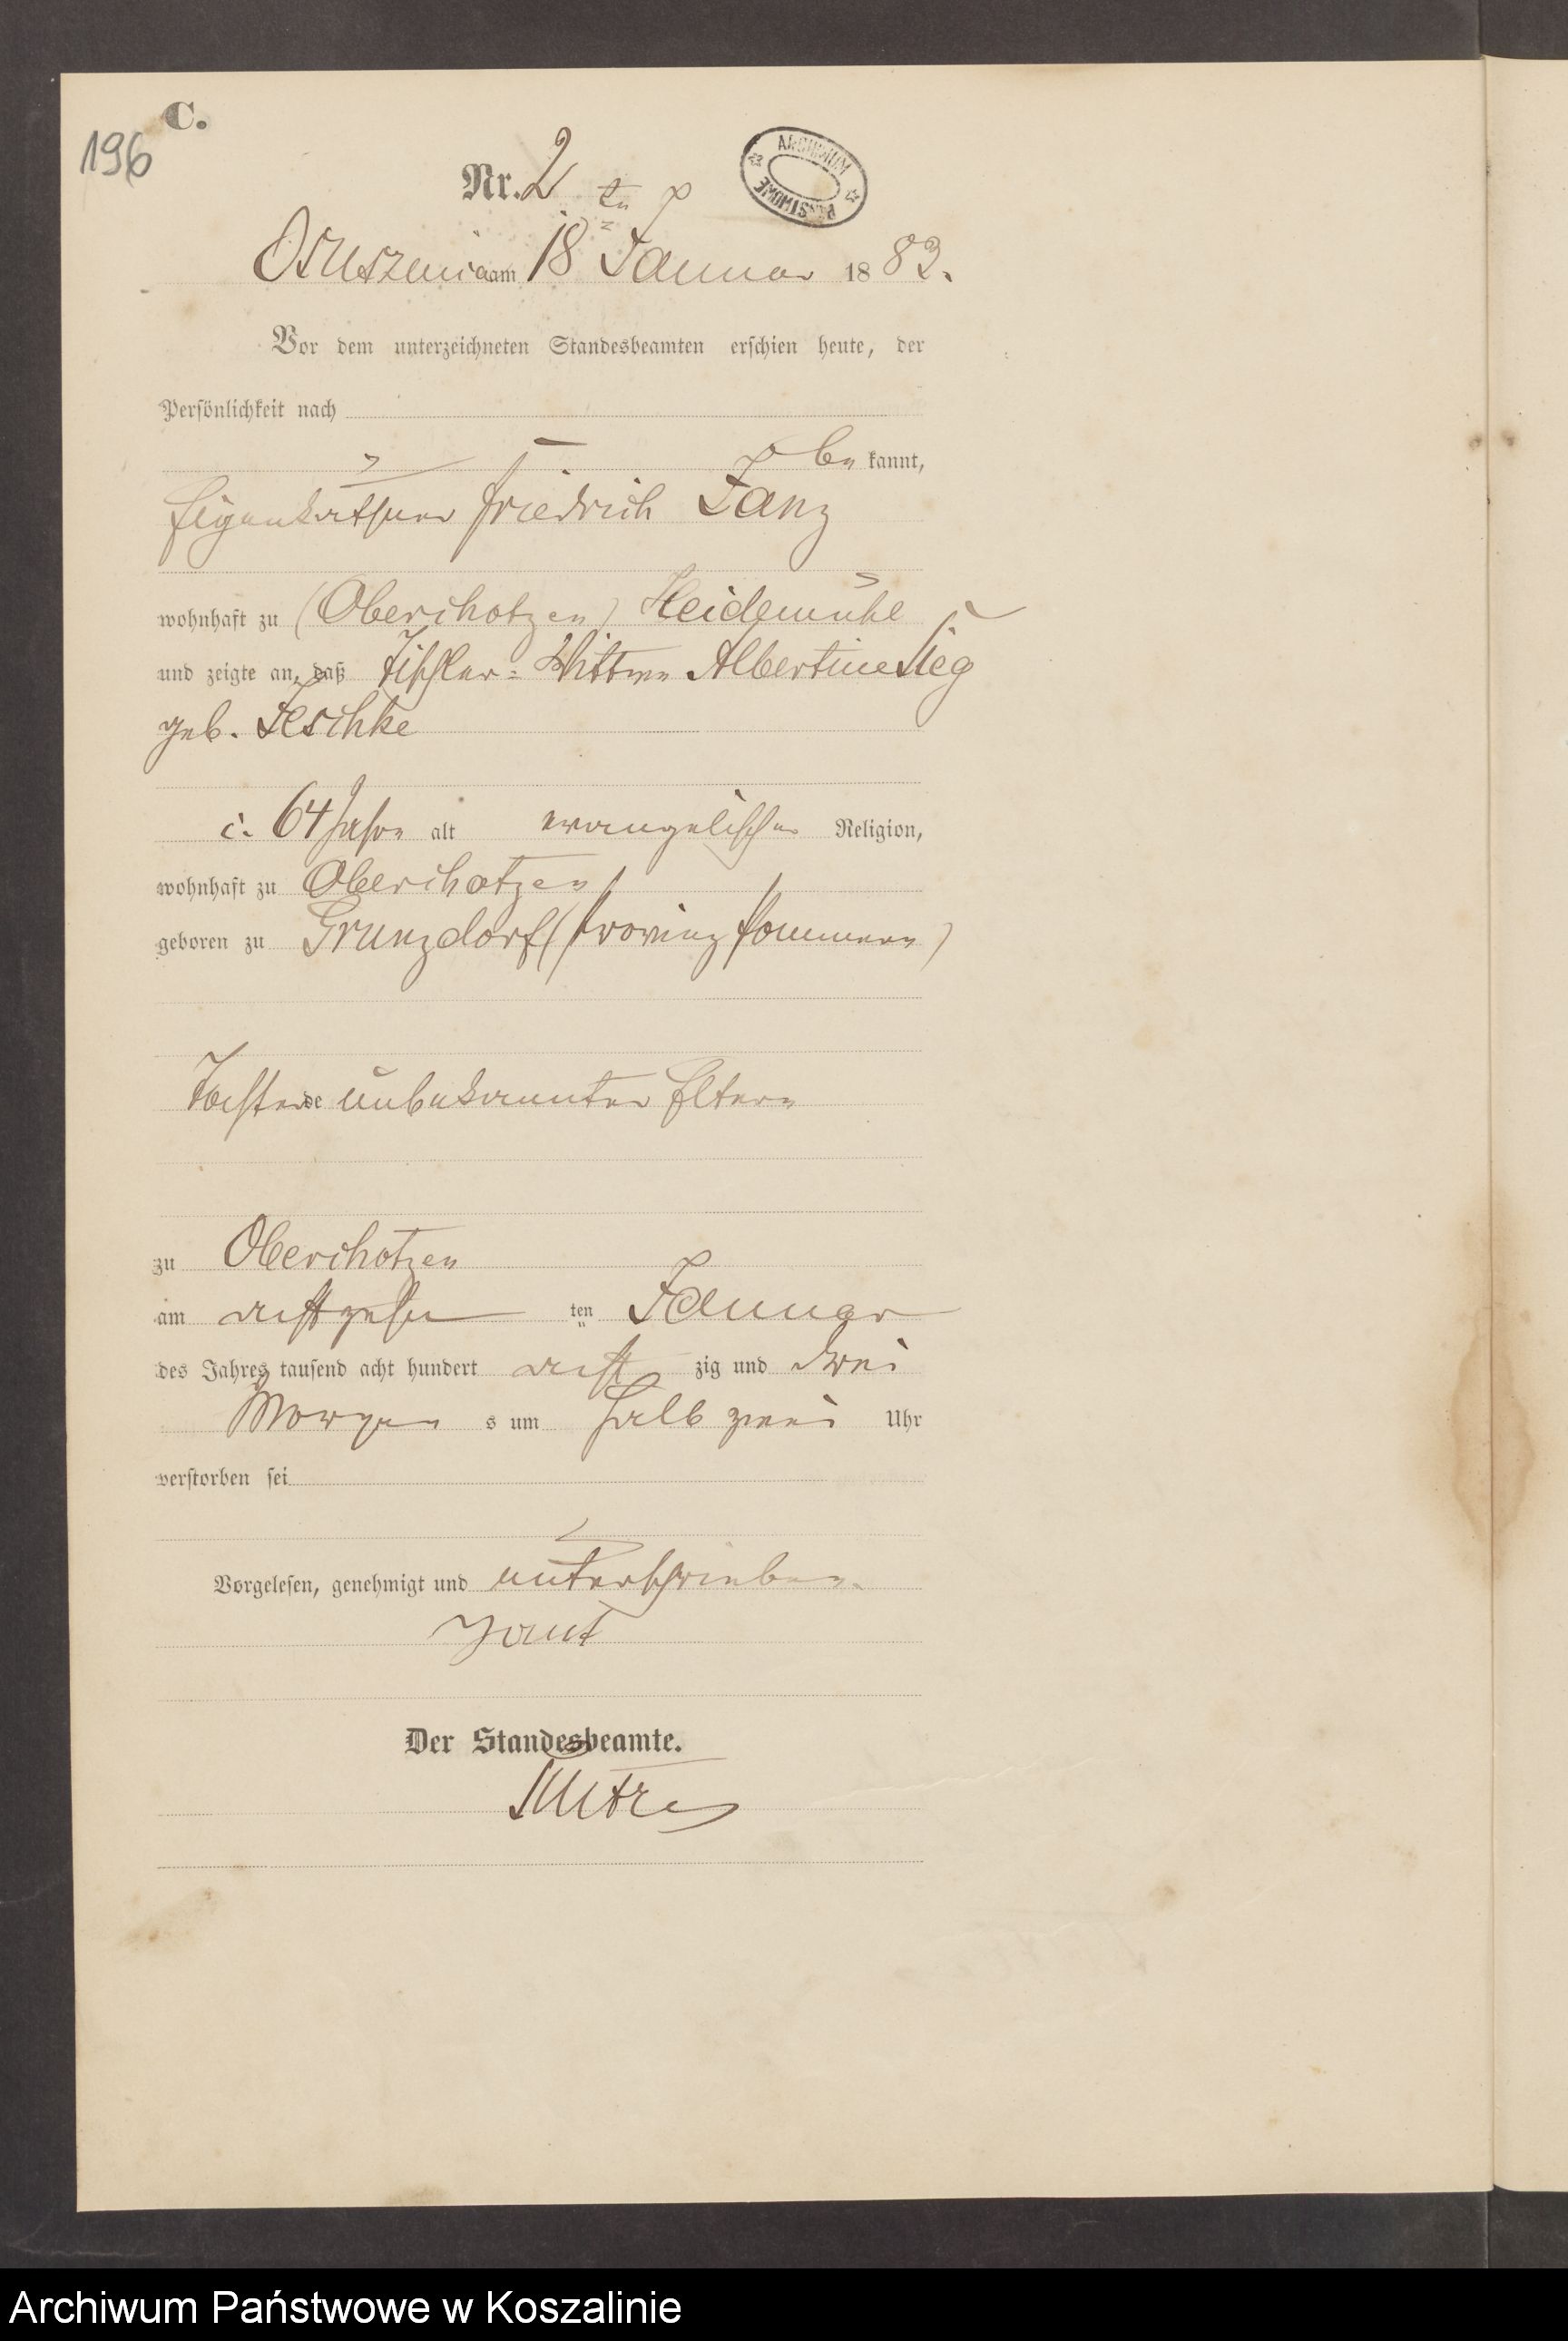 C.
196
Nr. 2
ARCHIWUM PAŃSTWOWE
Osuszenica am 18ten Januar 1882.
Vor dem unterzeichneten Standesbeamten erschien heute, der
Persönlichkeit nach
be kannt,
Eigenkäthner Friedrich Janz
wohnhaft zu (Oberchotzen) Heidemühl
und zeigte an, daß Tischler= Wittwe Albertine Sieg
geb. Jeschke
c. 64 Jahre alt evangelischer Religion,
wohnhaft zu Oberchotzen
geboren zu Grunzdorf (Provinz Pommern)
Tochter de unbekannter Eltern
zu Oberchotzen
am achtzehn ten Januar
des Jahres tausend acht hundert acht zig und zwei
Morgen s um halb zwei Uhr
verstorben sei
Vorgelesen, genehmigt und unterschrieben.
Der Standesbeamte.
Archiwum Państwowe w Koszalinie